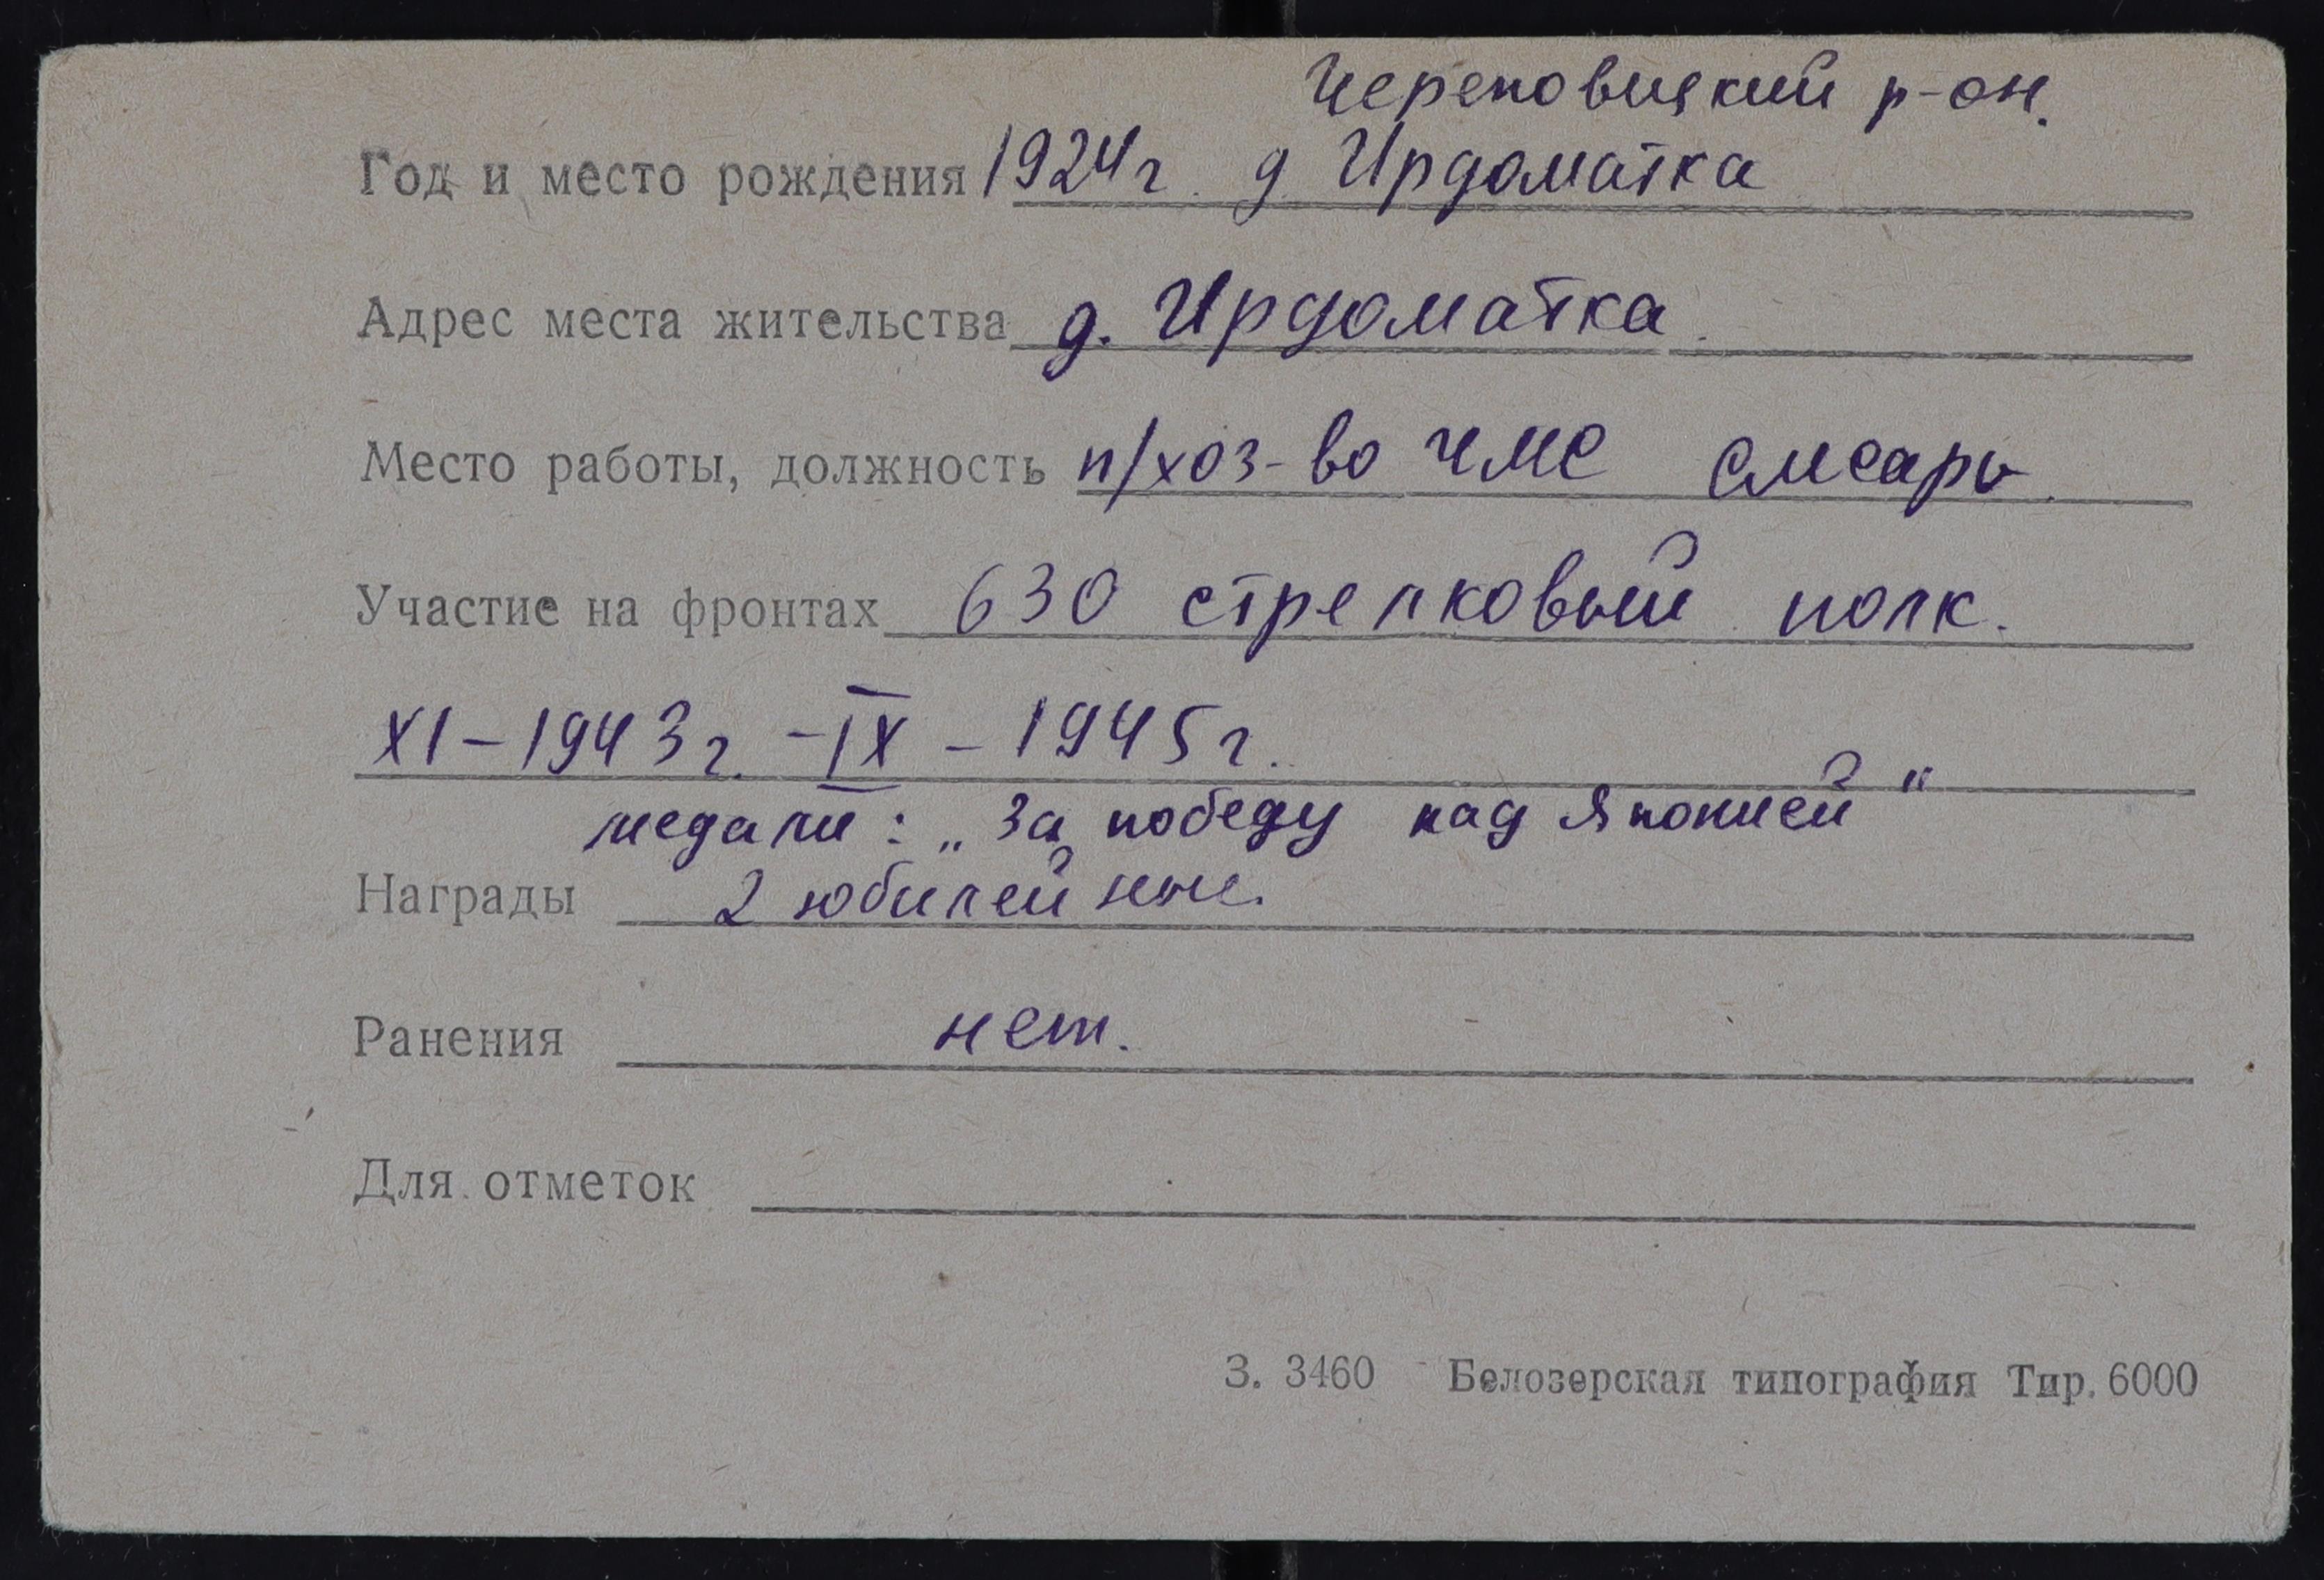 Череповецкий р-он.
Год и место рождения 1924г. д. Ирдоматка
Адрес места жительства д. Ирдоматка.
Место работы, должность п/хоз-во ЧМС слесарь.
Участие на фронтах 630 стрелковый полк.
XI – 1943г. – IX – 1945г.
медали: „За победу над Японией"
Награды 2 юбилейные.
Ранения нет.
Для отметок
З. 3460 Белозерская типография Тир. 6000